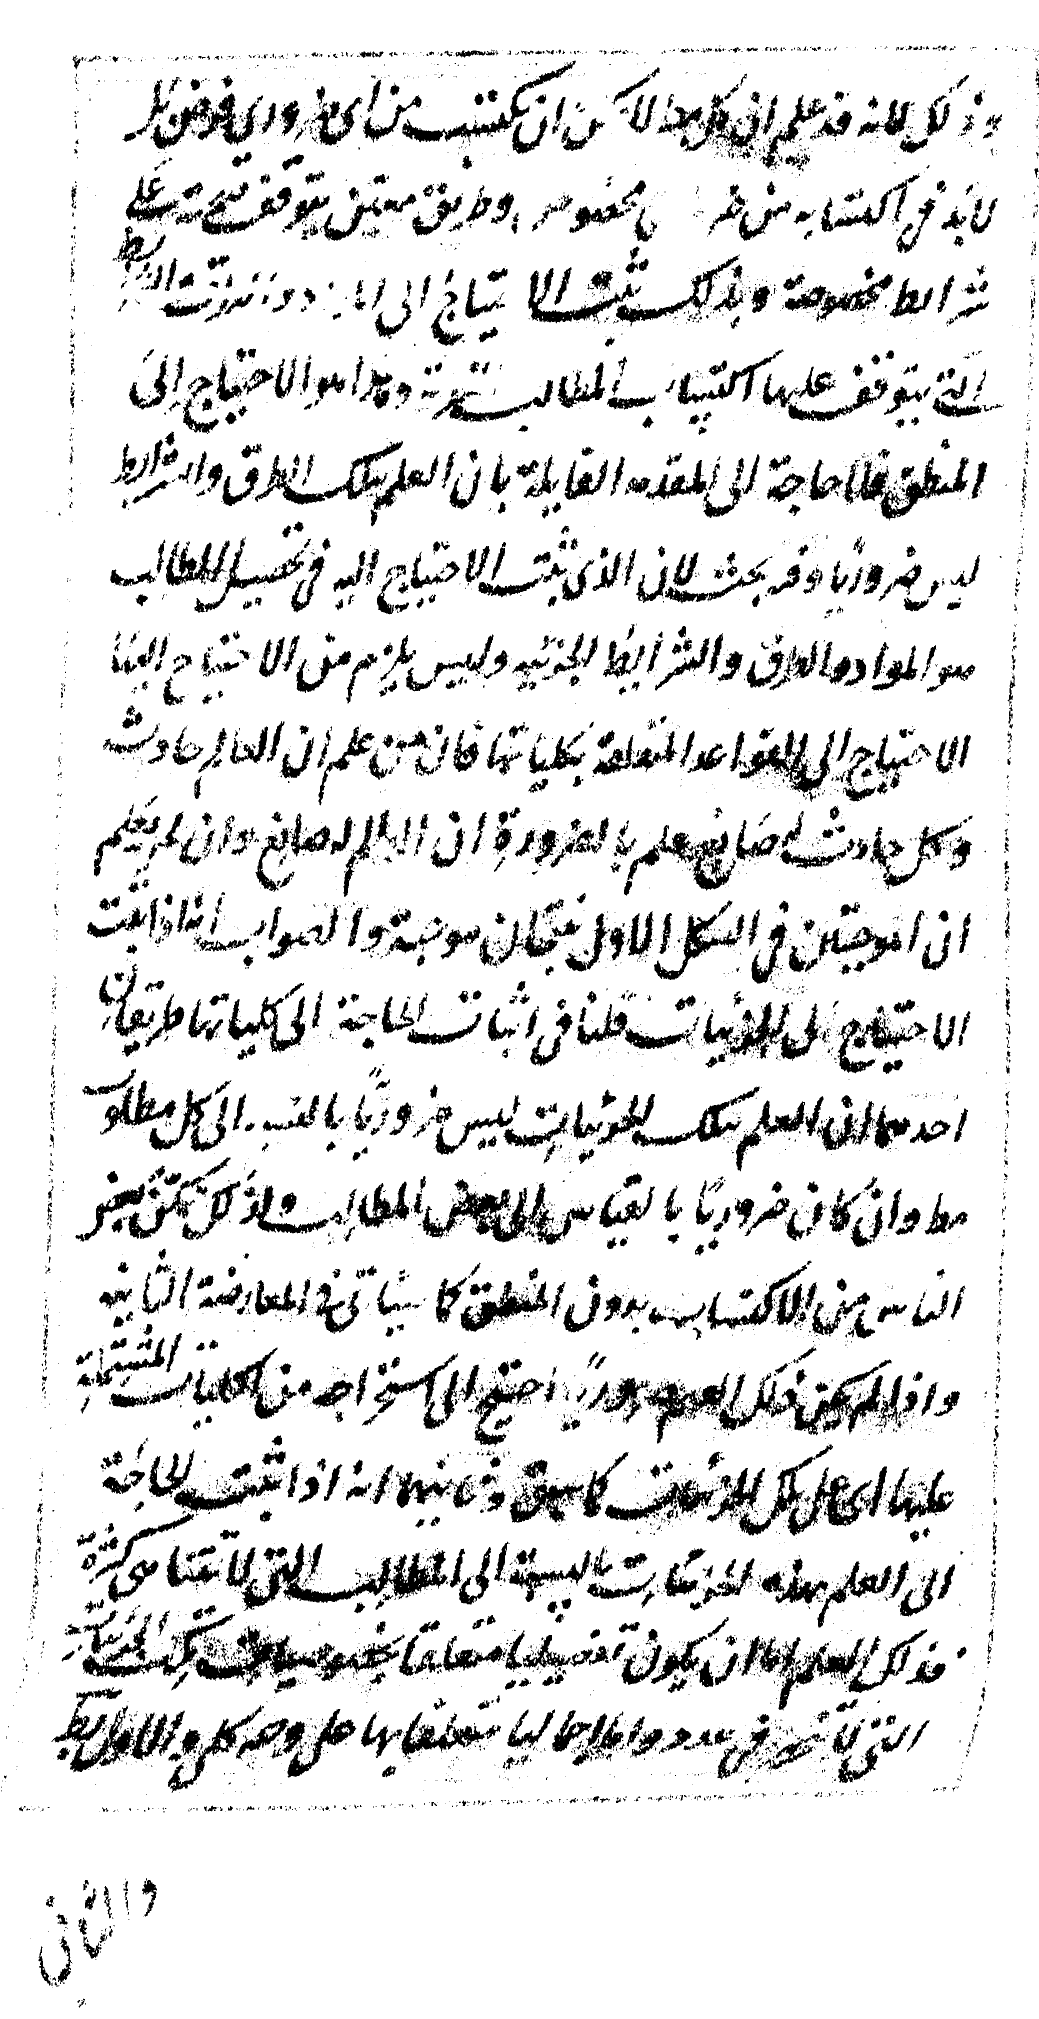 وذلك لانه قد علم ان كل مط لا يمكن ان يكتسب من اى ضرورى فرض بل
لا بد فى اكتسابه من ضرورى مخصوص وطريق معين يتوقف صحته على
شرائط مخصوصة وبذلك يثبت الاحتياج الى المواد والشرائط
التى يتوقف عليها اكتساب المطالب وهذا هو الاحتياج الى
المنطق فلا حاجة الى المقدمه القايلة بان العلم بتلك الطرق والشرايط
ليس ضروريا وفيه بحث لان الذى يثبت الاحتياج اليه فى تحصيل المطالب
هو المواد والطرق والشرايط الجزئيه وليس يلزم من الاحتياج اليها
الاحتياج الى القواعد المتعلقة بكلياتها فان من علم ان العالم حادث
وكل حادث له صانع علم بالضرورة ان العالم له صانع وان لم يعلم
ان الموجبتين فى الشكل الاول ينتجان موجبة والصواب انه اذا ثبت
الاحتياج الى الجزئيات فلنا فى اثبات الحاجة الى كلياتها طريقان
احدهما ان العلم بتلك الجزئيات ليس ضروريا بالنسبة الى كل مطلوب
مط وان كان ضروريا بالقياس الى بعض المطالب ولذلك تمكن بعض
الناس من الاكتساب بدون المنطق كما سيأتى فى المعارضة الثانيه
واذا لم يكن ذلك العلم ضروريا احتيج الى استخراجه من الكليات المشتملة
عليها اى على تلك الجزئيات كما سبق وثانيهما انه اذا ثبت الحاجة
الى العلم بهذه الجزئيات بالنسبة الى المطالب التى لا تتناهى كثرة
فذلك العلم اما ان يكون تفصيليا متعلقا بخصوصيات تلك الجزئيات
التى لا تنحصر فى عدد واما اجماليا متعلقا بها على وجه كلى والاول بط
والثانى